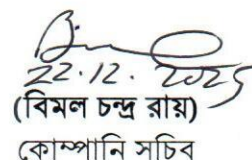 22.12.2025
(বিমল চন্দ্র রায়)
কোম্পানি সচিব